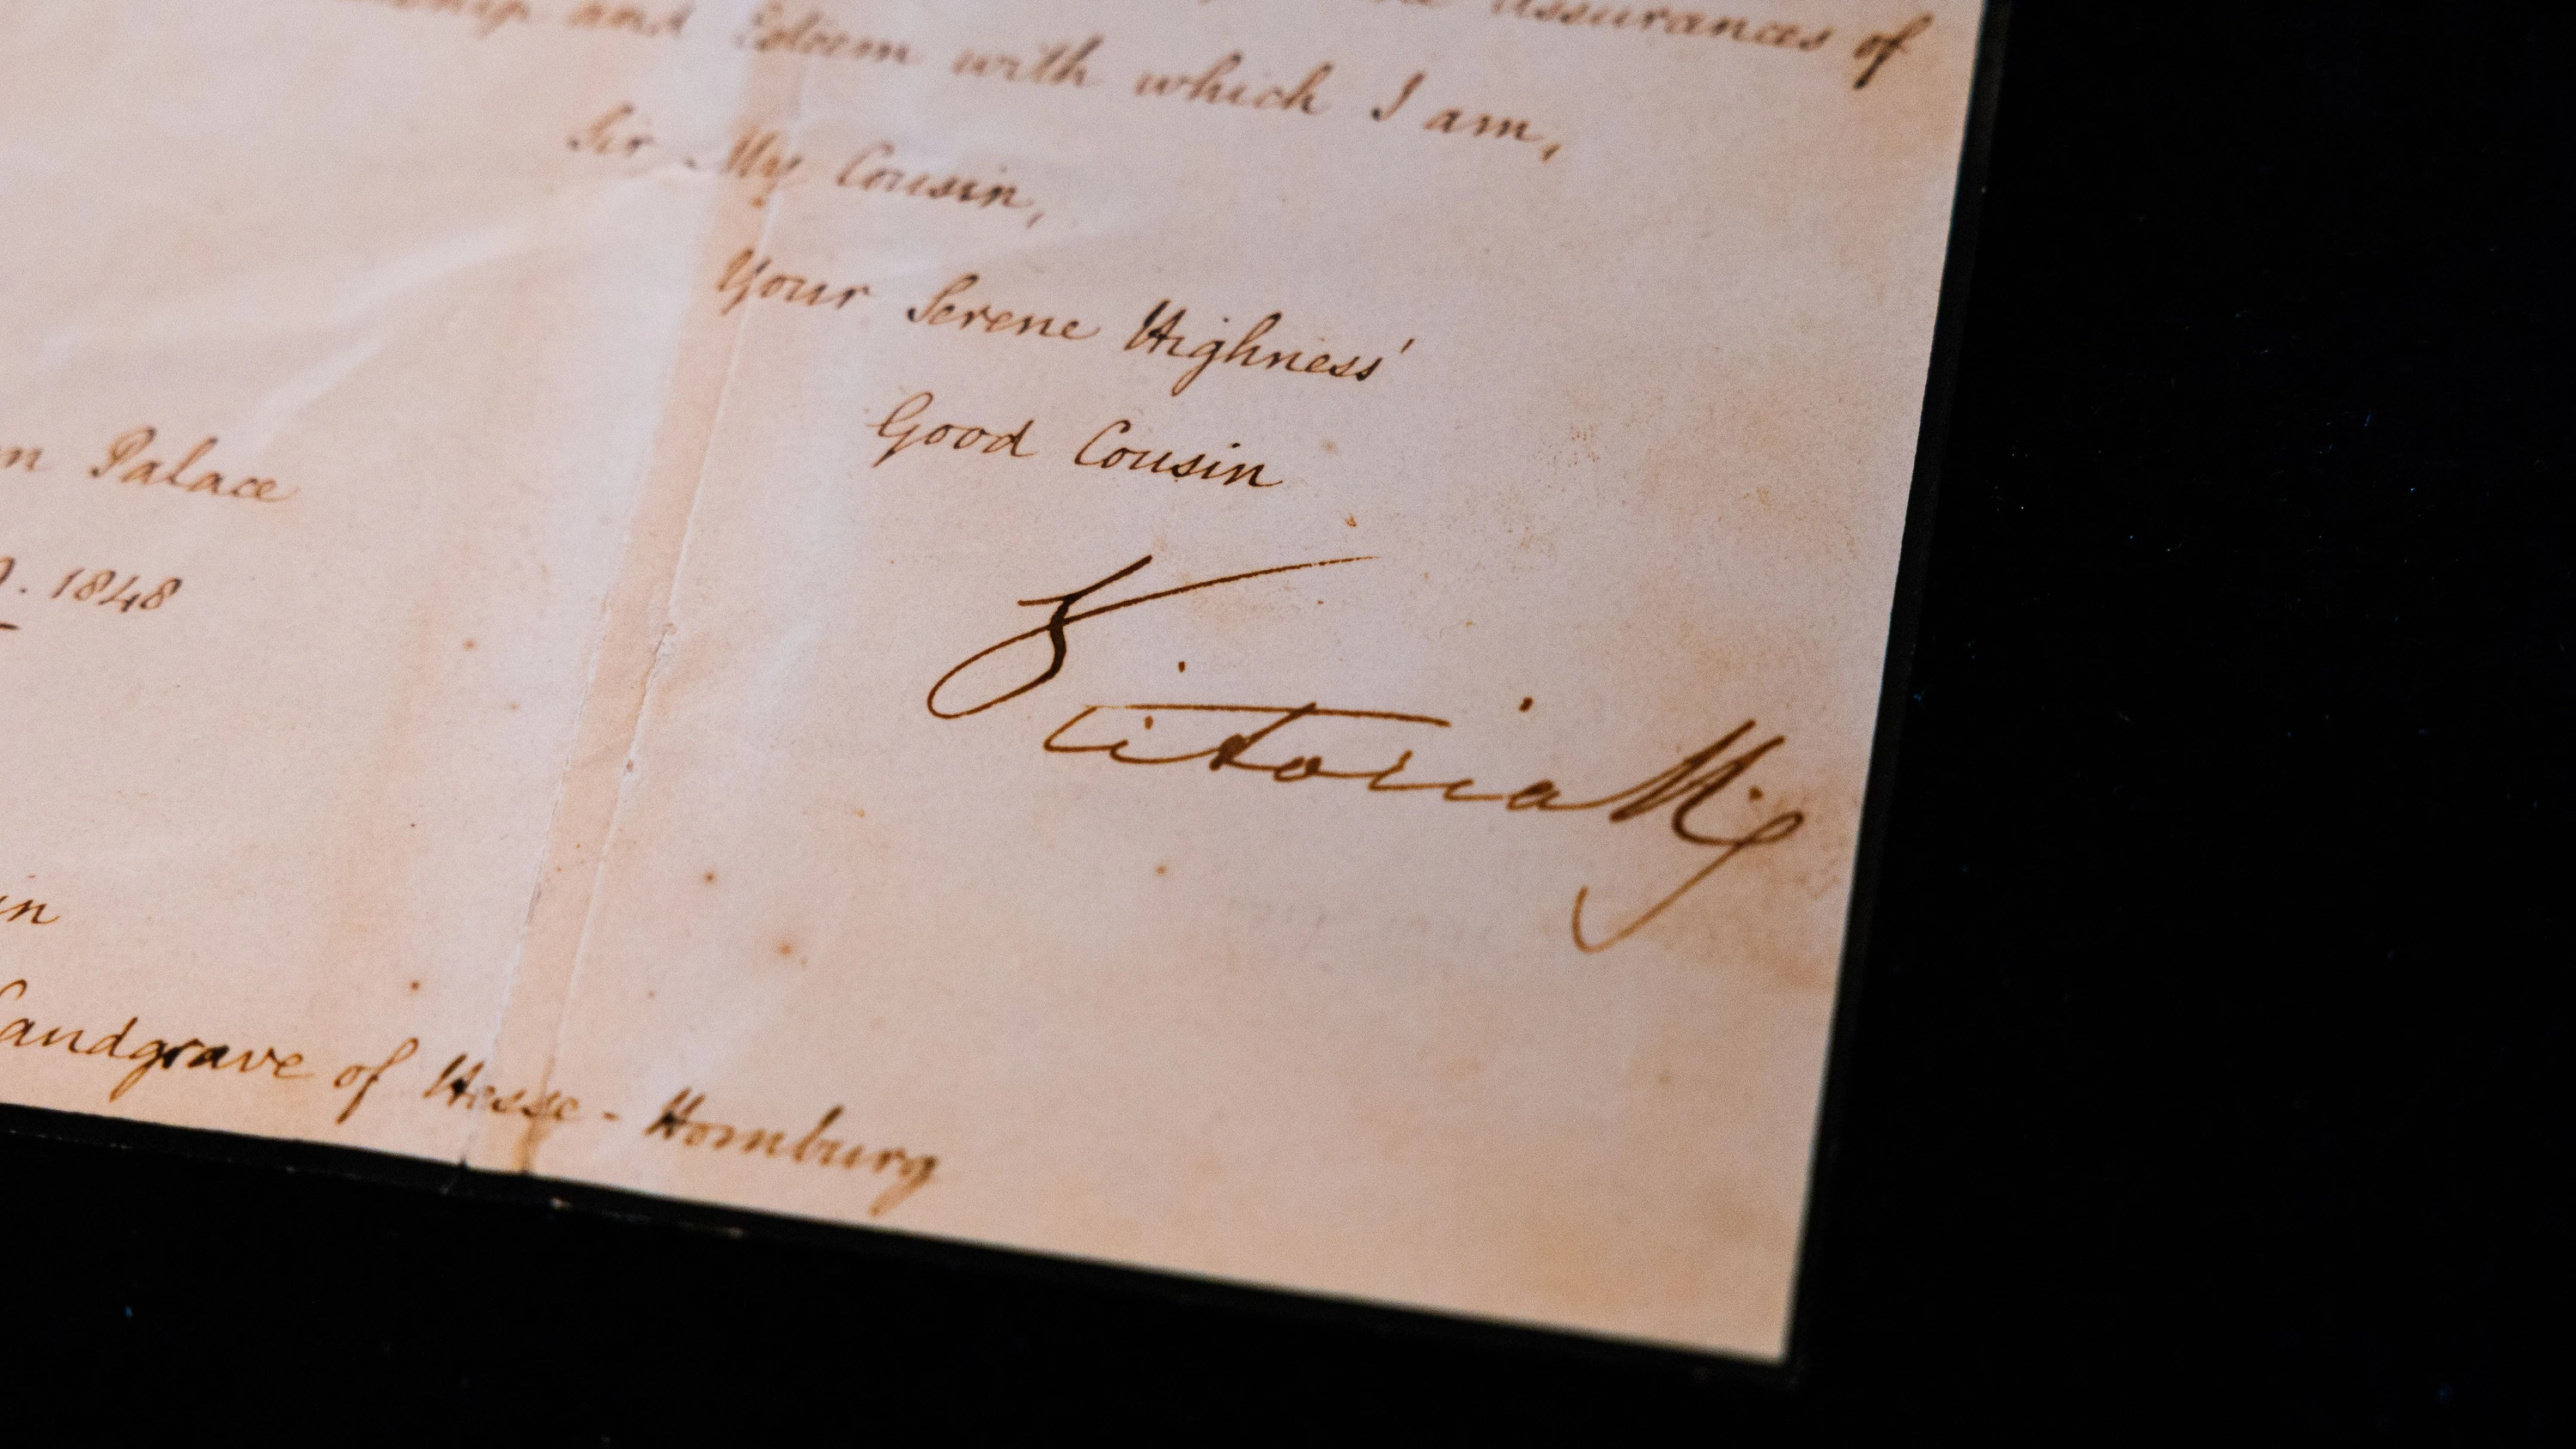 assurances of
and Esteem with which I am,
Sir My Cousin,
Your Serene Highness'
Good Cousin
Palace
1848
Victoria R
in
Landgrave of Hesse-Homburg